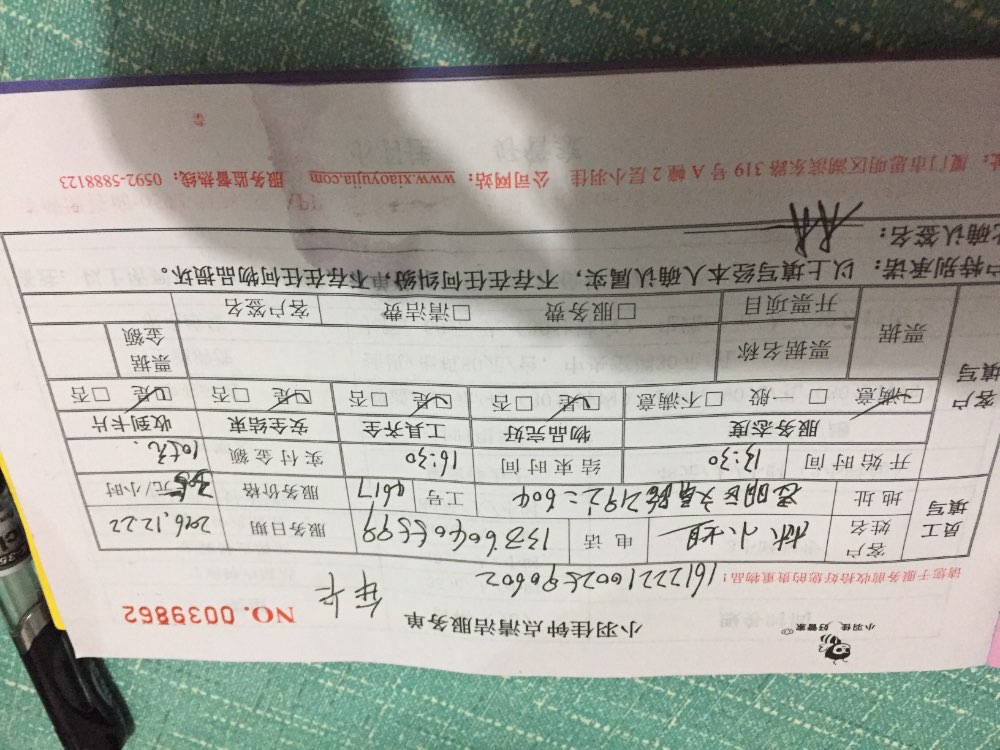 小羽佳 好管家
小羽佳钟点清洁服务单
年卡
NO. 0039862
请您于服务前收拾好您的贵重物品！
1612221002590602
员工填写
客户姓名 林小姐 电话 13860405599 服务日期 2016.12.22
地址 思明区 工号 9617 服务价格 35元/小时
开始时间 13:30 结束时间 16:30 实付金额 105元.
客户填写
服务态度 物品完好 工具齐全 安全结束 收到卡片
☑满意 □一般 □不满意 ☑是 □否 ☑是 □否 ☑是 □否 ☑是 □否
票据 票据名称 票据金额
开票项目 □服务费 □清洁费 客户签名
户特别承诺：以上填写经本人确认属实，不存在任何纠纷，单不存在任何物品损坏。
确认签名：
厦门市思明区湖滨东路319号A幢2层小羽佳 公司网站：www.xiaoyujia.com 服务监督热线：0592-5888123